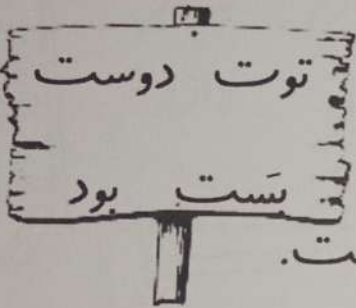 توت دوست
بَست بود
ت.